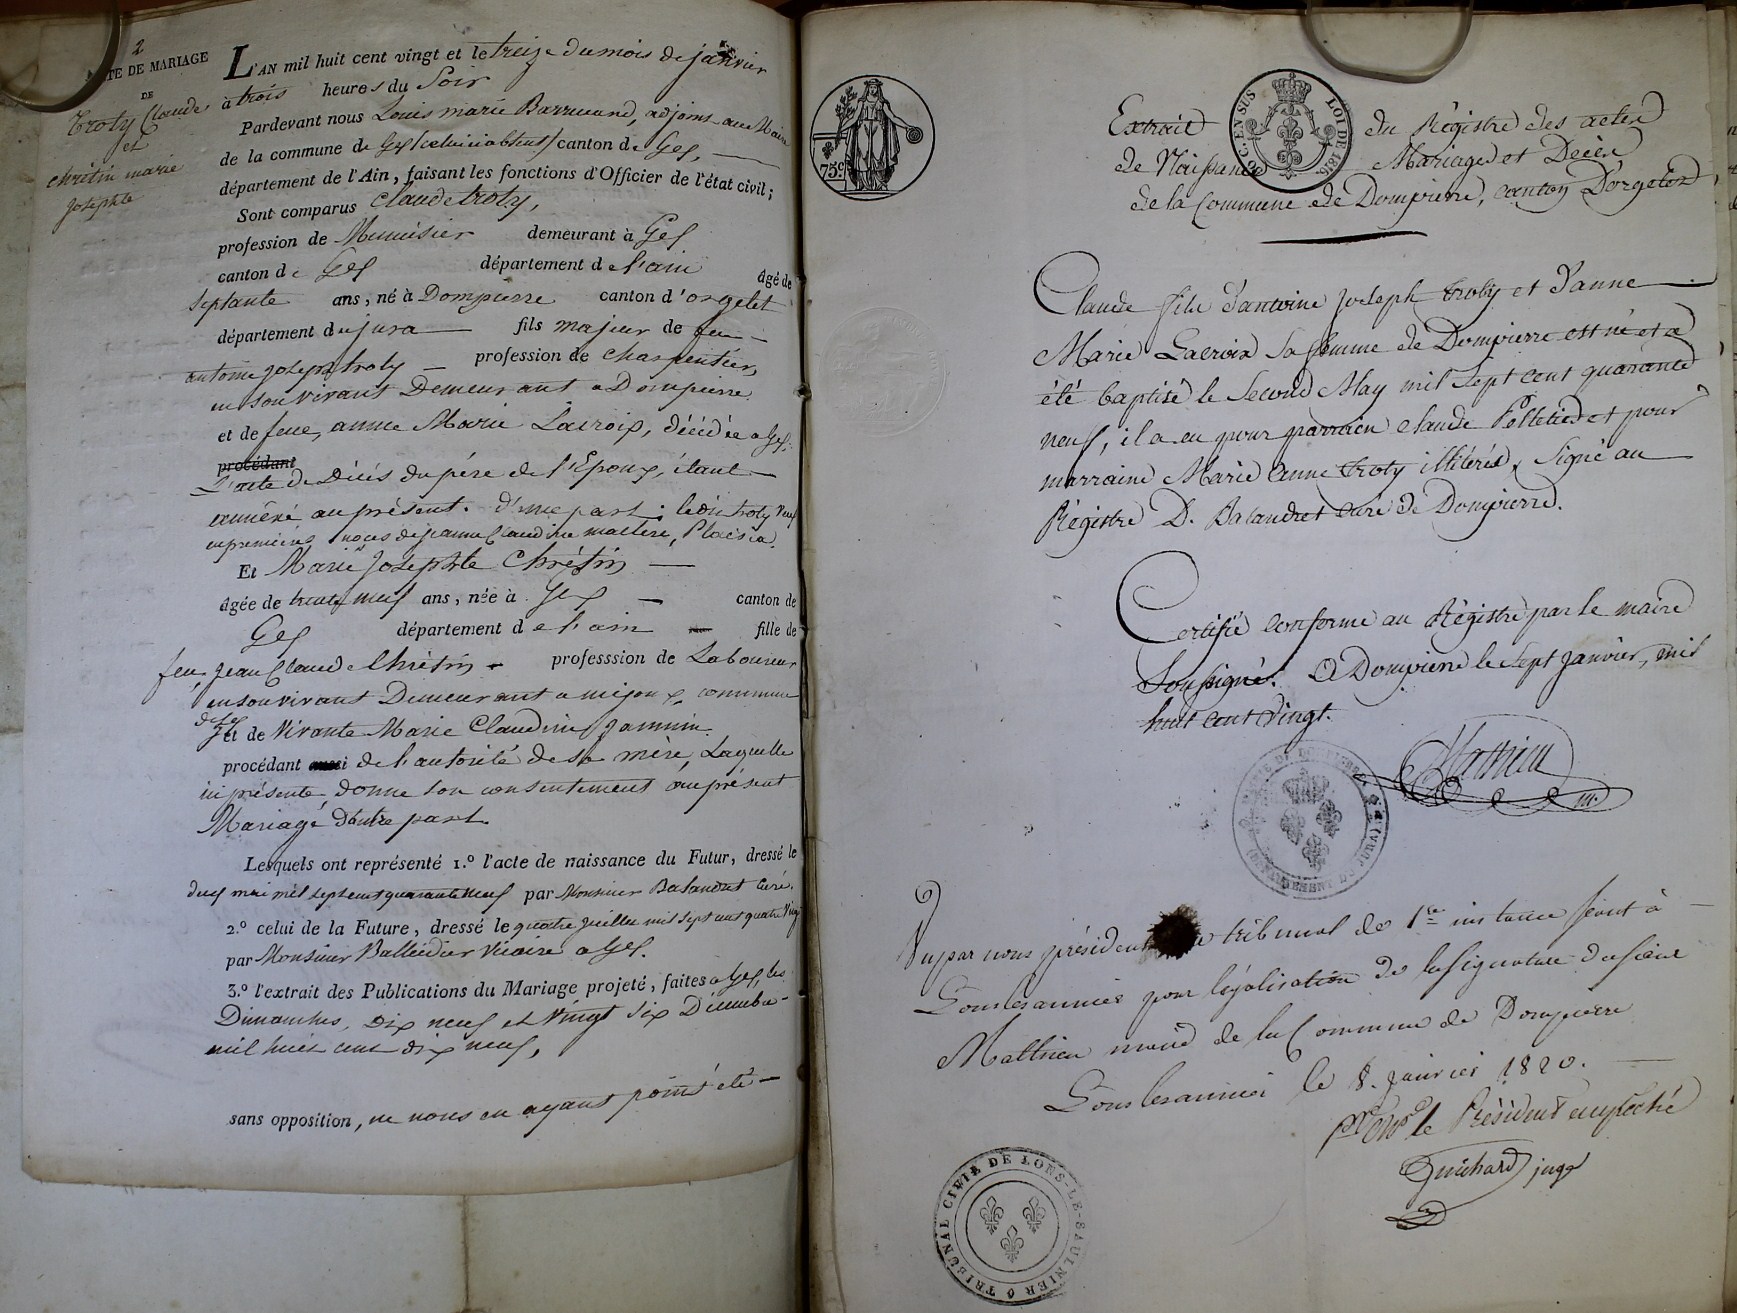 2
ACTE DE MARIAGE
DE
Troty Claude
et
chretin marie
Josephte
L'AN mil huit cent vingt et le treize du mois de janvier
à trois heures du Soir
Pardevant nous Louis marie Barruand, adjoint au Maire
de la commune de Gex (celui ci absent) canton de Gex,
département de l'Ain, faisant les fonctions d'Officier de l'état civil;
Sont comparus Claude troty,
profession de Menuisier demeurant à Gex
canton de Gex département de l'ain âgé de
septante ans, né à Dompierre canton d'orgelet
département du jura fils majeur de feu
antoine joseph troty profession de charpentier,
en son vivant Demeurant a Dompierre
et de feue, anne Marie Lacroix, décédée a Gex.
procédant
L'acte de Décès du père de l'Epoux, étant
annéxé au présent. d'une part; le dit troty Veuf
en premières noces de jeanne Claudine
Et Marie Josephte Chrétin
âgée de trente neuf ans, née à Gex canton de
Gex département de l'ain fille de
feu, Jean Claude Chrétin professsion de Laboureur
en son vivant Demeurant a mijoux, commune
de Gex
et de Vivante Marie Claudine Jannin
procédant aussi de l'autorité de sa mère, Laquelle
ici présente donne son consentement au présent
Mariage d'autre part.
Lesquels ont représenté 1.º l'acte de naissance du Futur, dressé le
deux mai mil sept cent quarante neuf par Monsieur Balandret curé.
2.º celui de la Future, dressé le quatre juillet mil sept cent quatre Vingt
par Monsieur Balleidier Vicaire a Gex.
3.º l'extrait des Publications du Mariage projeté, faites a Gex, les
Dimanches, dix neuf et vingt six Décembre
mil huit cent dix neuf,
sans opposition, ne nous en ayant point été
75 c
C. EN SUS LOI DE 1816
Extrait du Régistre des actes
de Naissance Mariages et Décès
de la Commune de Dompierre, canton D'orgelet
Claude fils d'antoine joseph Troty et d'anne
Marie Lacroix sa femme de Dompierre est né et a
été baptisé le Second May mil sept cent quarante
neuf, il a eu pour parrain claude Pelletier et pour
marraine Marie Anne Troty illiterés, Signé au
Régistre D. Balandret curé de Dompierre.
Certifié conforme au Régistre par le maire
Soussigné. A Dompierre le sept janvier, mil
huit cent vingt.
Mathieu
m.
Vu par nous président du tribunal de 1re instance séant à
Lonslesaunier pour légalisation de la signature du sieur
Mathieu maire de la Commune de Dompierre
Lonslesaunier le 8. janvier 1820.
le Président empêché
Guichard juge
TRIBUNAL CIVIL DE LONS-LE-SAULNIER